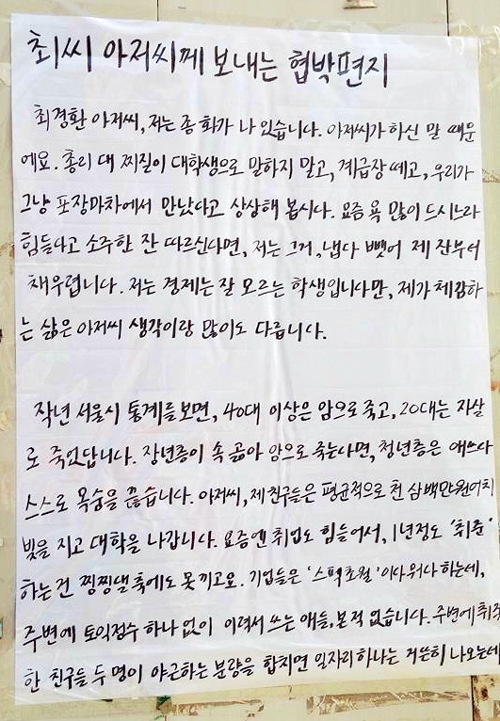 최씨 아저씨께 보내는 협박편지
최경환 아저씨, 저는 좀 화가 나 있습니다. 아저씨가 하신 말 때문
에요. 총리 대 찌질이 대학생으로 말하지 말고, 계급장 떼고, 우리가
그냥 포장마차에서 만났다고 상상해 봅시다. 요즘 욕 많이 드시느라
힘들다고 소주 한 잔 따르신다면, 저는 그거, 냅다 뺏어 제 잔부터
채우렵니다. 저는 경제는 잘 모르는 학생입니다만, 제가 체감하
는 삶은 아저씨 생각이랑 많이도 다릅니다.
작년 서울시 통계를 보면, 40대 이상은 암으로 죽고, 20대는 자살
로 죽었답니다. 장년층이 속 곪아 암으로 죽는다면, 청년층은 애쓰다
스스로 목숨을 끊습니다. 아저씨, 제 친구들은 평균적으로 천 삼백만원어치
빚을 지고 대학을 나갑니다. 요즘엔 취업도 힘들어서, 1년정도 '취준'
하는건 찡찡댈 축에도 못 끼고요. 기업들은 '스펙초월' 이다 뭐다 하는데,
주변에 토익점수 하나 없이 이력서 쓰는 애들, 본 적 없습니다. 주변에 취직
한 친구들 두 명이 야근하는 분량을 합치면 일자리 하나는 거뜬히 나오는데